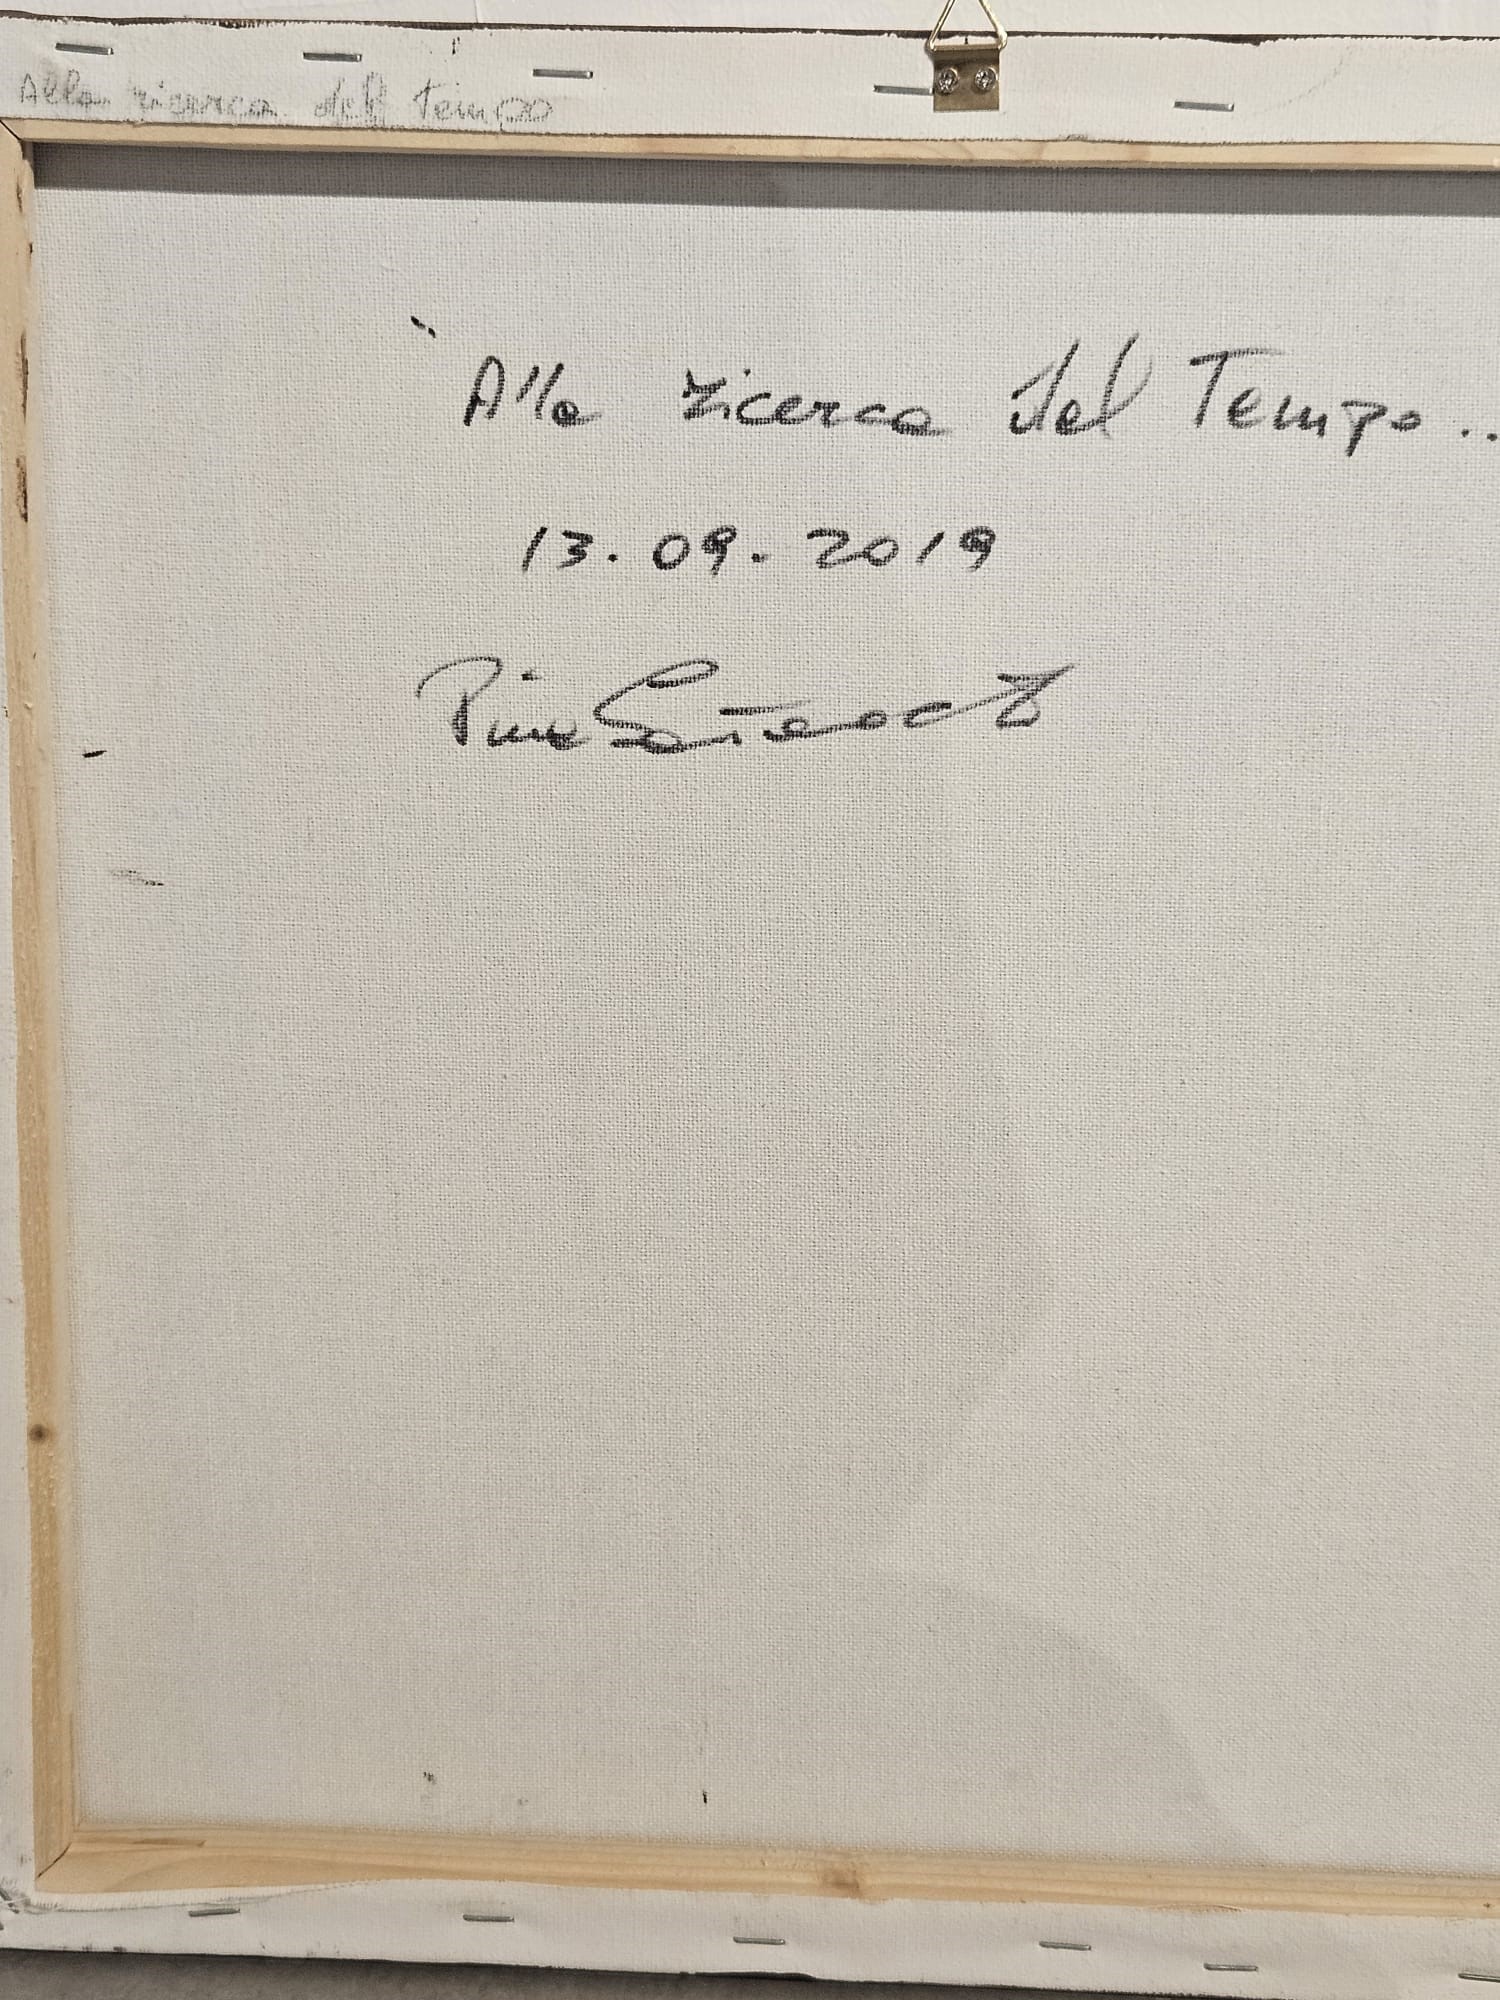 Alla ricerca del tempo
"Alla ricerca del Tempo..
13.09.2019